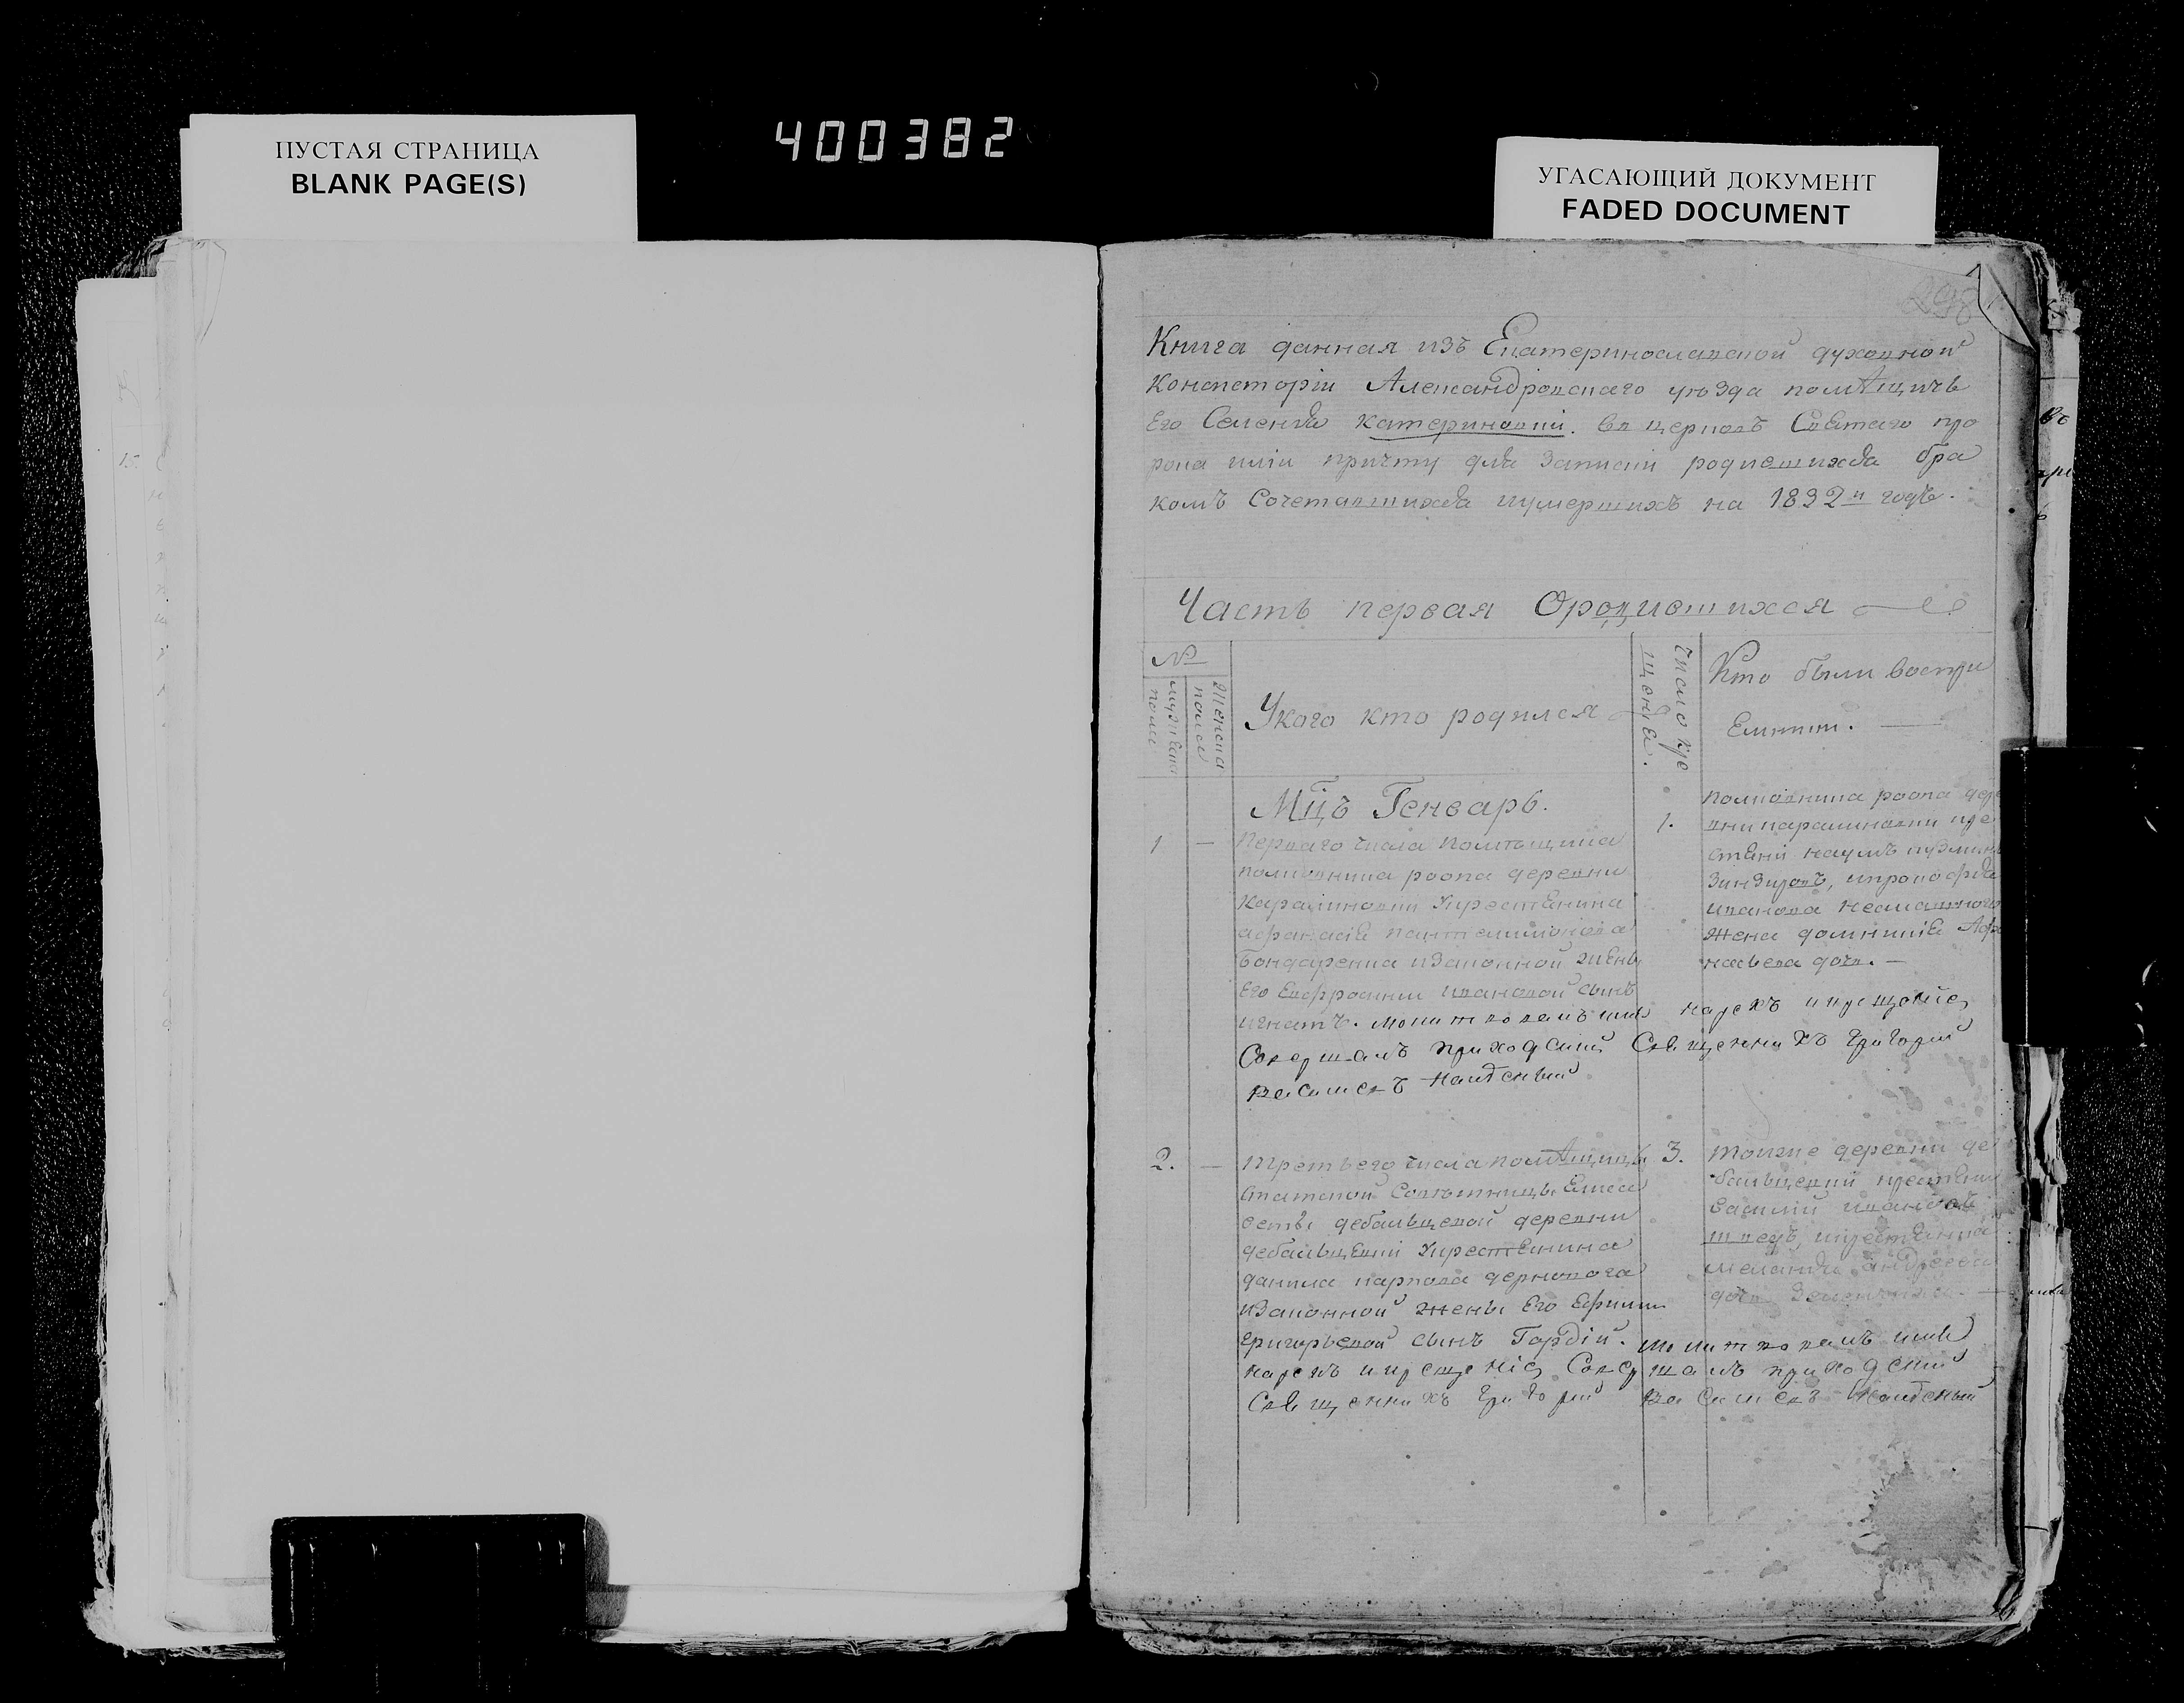 ПУСТАЯ СТРАНИЦА
BLANK PAGE(S)
400382
УГАСАЮЩИЙ ДОКУМЕНТ
FADED DOCUMENT
298
Книга данная изъ Екатеринославской духовной
Консисторіи Александровскаго уѣзда помѣщичь
его Селенія Катериновки. въ церковь Святаго про
рока иліи причту для записки родившихся бра
комъ Сочетавшихся иумершихъ на 1832й годъ.
Часть первая Ородившихся
№
мужеска полу
Женска полса
Укого кто родился
Число кре
щенія.
Кто были воспри
Емники.
Мц̃ъ Генварь.
1 —
Перваго числа Помѣщика
полковника роопа деревни
Каралиновки Укрестьянина
афанасія пантелиимонова
Бондаренка изаконной жены
Его Евфросини ивановой сынъ
игнатъ. молитвовалъ имя нарекъ икрещеніе
Совершалъ приходский Священникъ Григорий
Василевъ
1.
полковника роопа дере
вни каралиновки кре
стяни наумъ
ипрокофія
иванова
жена домникія Афа
насьева дочь. —
2. —
Третьего числа помѣщицы
статской Совѣтницы Елиса
веты дебальцевой деревни
дебальцевки Укрестьянина
данила карпова дерновога
изаконной жены Его Ефимии
Григорьевой сынъ Гордій. молитвовалъ имя
нарекъ икрещеніе Совершалъ приходский
Священникъ Григорий Василевъ
3.
Тойже деревни де
бальцевки крестяни
василий ивановъ
швецъ, икрестьянка
андреева
дочь